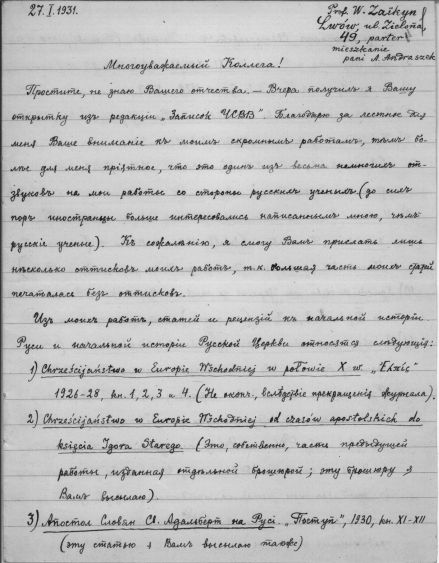 27.I.1931.
Prof. W. Zaikyn
Lwów, ul. Zielona,
49, parter
mieszkanie
pani A. Andraszek
Многоуважаемый Коллега!
Простите, не знаю Вашего отчества. — Вчера получилъ я Вашу
открытку изъ редакціи „Записок ЧСВВ". Благодарю за лестное для
меня Ваше вниманіе къ моимъ скромнымъ работамъ, тѣмъ бо-
лѣе для меня пріятное, что это одинъ изъ весьма немногихъ от-
звуковъ на мои работы со стороны русскихъ ученыхъ (до сихъ
поръ иностранцы больше интересовались написаннымъ мною, чѣмъ
русскіе ученые). Къ сожалѣнію, я смогу Вамъ прислать лишь
нѣсколько оттисковъ моихъ работъ, т.к. большая часть моихъ статей
печаталась безъ оттисковъ.
Изъ моихъ работъ, статей и рецензій къ начальной исторіи
Руси и начальной исторіи Русской Церкви относятся слѣдующія:
1) Chrześcijaństwo w Europie Wschodniej w połowie X w. „Ἐλπίς"
1926-28, кн. 1, 2, 3 и 4. (Не оконч., вслѣдствіе прекращенія журнала).
2) Chrześcijaństwo w Europie Wschodniej od czasów apostolskich do
księcia Igora Starego. (Это, собственно, часть предыдущей
работы, изданная отдѣльной брошюрой; эту брошюру я
Вамъ высылаю).
3) Апостол Словян Св. Адальберт на Русі. „Поступ", 1930, кн. XI-XII
(эту статью я Вамъ высылаю также)